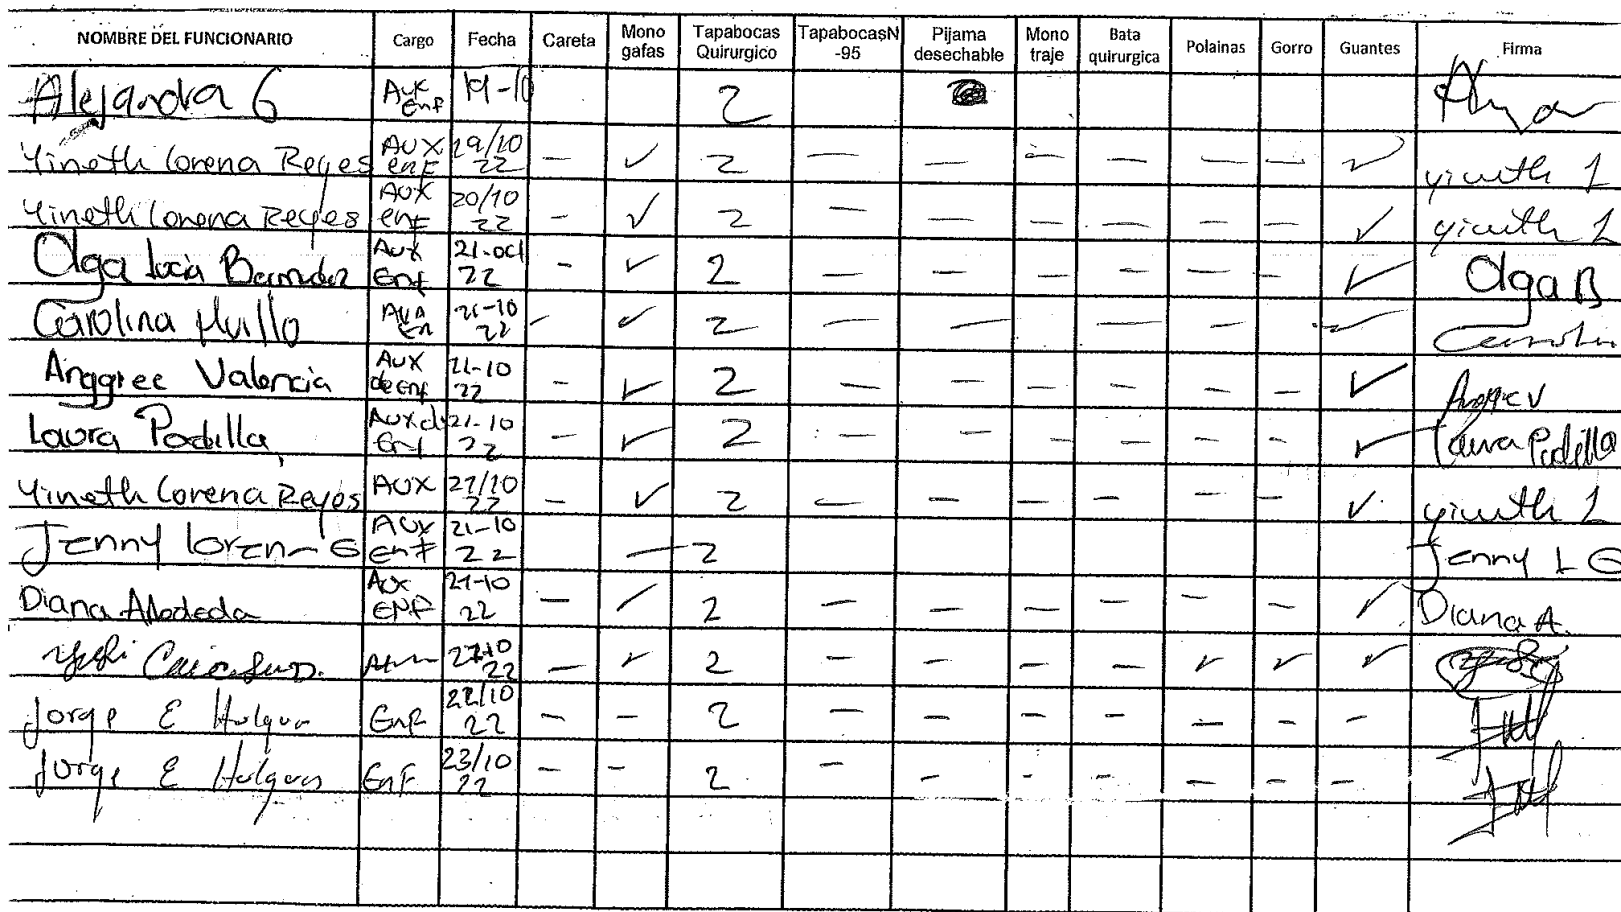 NOMBRE DEL FUNCIONARIO Cargo Fecha Careta Mono gafas Tapabocas Quirurgico TapabocasN-95 Pijama desechable Mono traje Bata quirurgica Polainas Gorro Guantes Firma
Alejandra G Aux Enf 19-10 2
Yineth Lorena Reyes AUX enf 19/10 22 — ✓ 2 — — — — — — ✓ yineth L
Yineth Lorena Reyes AUX enf 20/10 22 - ✓ 2 — — — — — — ✓ yineth L
Olga Lucia Aux Enf 21-oct 22 - ✓ 2 — — — — — — ✓ Olga B
Carolina 21-10 22 - ✓ 2 — — — — — — ✓
Anggiee Valencia AUX de enf 21-10 22 - ✓ 2 — — — — — — ✓ Anggie V
Laura Padilla Aux d Enf 21-10 22 — ✓ 2 — — — — — — ✓ Laura Padilla
Yineth Lorena Reyes AUX 21/10 22 - ✓ 2 — — — — — — ✓ yineth L
Jenny Loren G AUX Enf 21-10 22 — 2 Jenny L G
Diana AUX ENF 21-10 22 — ✓ 2 — — — — — — ✓ Diana A.
22 — ✓ 2 — — — — ✓ ✓ ✓
Jorge E Enf 22/10 22 — — 2 — — — — — — —
Jorge E Enf 23/10 22 — — 2 — — — — — — —